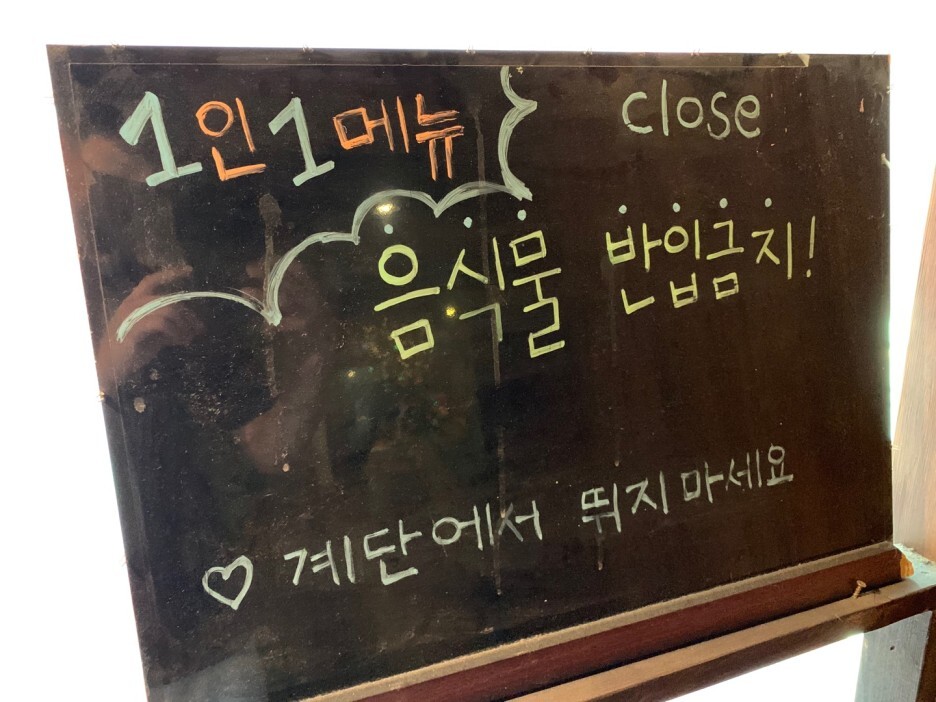 1인1메뉴
close
음식물 반입금지!
♡ 계단에서 뛰지 마세요